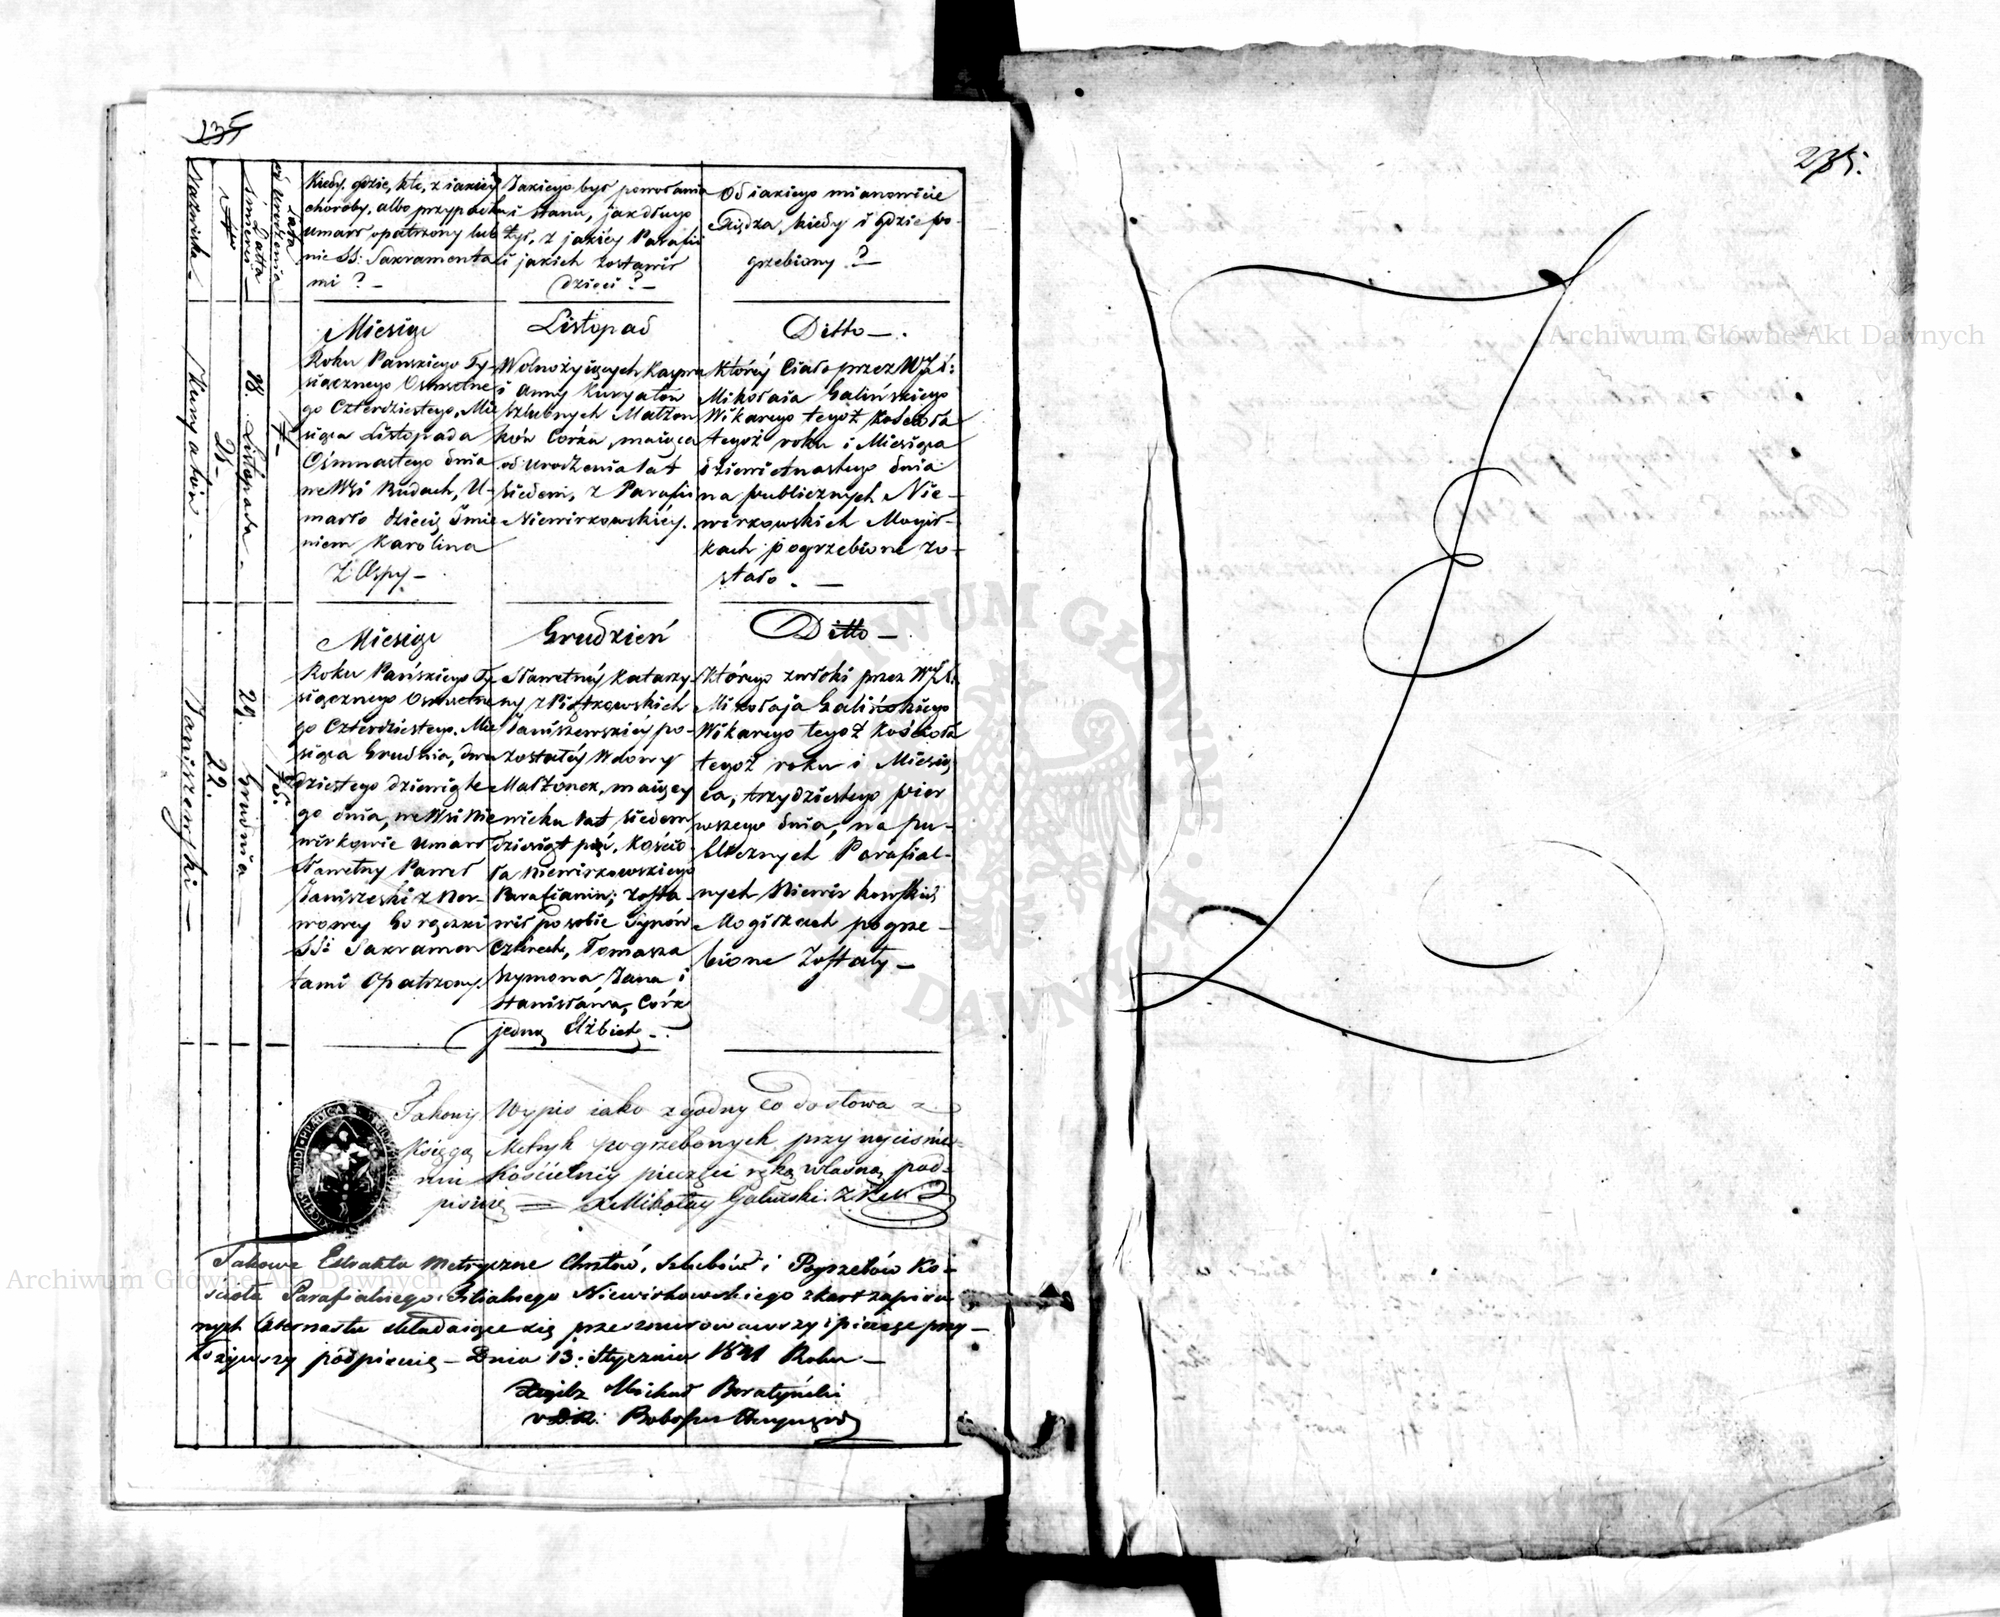 275.
Nazwiska
Nr
Datta
Śmierci
Lata
od Urodzenia
Kiedy, gdzie, kto, z iakiéy
choroby, albo przypadku
umarł opatrzony lub
nie SS: Sakramenta
mi ? —
Jakiego był powołania
i stanu, jakdługo
żył, z jakiéy Parafii
i jakich zostawił
dzieci ? —
Od iakiego mianowicie
Xiędza, kiedy i gdzie po-
grzebiony ? —
Kuryatów.
21.
18. Listopada.
7.
Miesiąc
Roku Pańskiego Ty-
siącznego Osmsetne
go Czterdziestego, Mie
siąca Listopada
Ośmnastego dnia
we Wsi Rudach, U-
marło dziecię Imie
niem Karolina
Z Ospy —
Listopad
Wolnożyiących Kaspra
i Anny Kuryatów
Szlubnych Małżon
ków Córka, maiąca
od urodzenia lat
siedem, z Parafii
Niewirkowskiéy.
Ditto —.
Któréy Ciało przez WJX:
Mikołaia Galińskiego
Wikarego tegoż Kościoła
tegoż roku i Miesiąca
dziewietnastego dnia
na publicznych Nie-
wirkowskich Mogił-
kach pogrzebione zo-
stało. —
Janiszewski —
22.
29. Grudnia
75.
Miesiąc
Roku Pańskiego Ty
siącznego Osmsetne
go Czterdziestego, Mie
siąca Grudnia, dwu
dziestego dziewiąte
go dnia, we Wsi Nie
wirkowie Umarł
Sławetny Paweł
Janiszeski z Ner-
wowey Gorączki
SS: Sakramen
tami Opatrzony.
Grudzień
Sławetnéy Katarzy
ny z Piotrowskich
Janiszewskiéy po-
zostałéy Wdowy
Małżonek, maiący
wieku lat siedem
dziesiąt pięć, Kościo
ła Niewirkowskiego
Parafianin; zosta-
wił po sobie Synów
Czterech, Tomasza
Szymona, Jana i
Stanisława, Córk
jedną Elżbietę —.
Ditto —
Którego zwłoki przez WJX.
Mikołaja Galińskiego
Wikarego tegoż Kościoła
tegoż roku i Miesią
ca, trzydziestego pier
wszego dnia, na pu-
blicznych Parafial-
nych Niewirkowskich
Mogiłkach pogrze-
bione zostały —
Takowy Wypis iako zgodny co do słowa z
Księgą Metryk pogrzebanych przy wyciśnie-
niu Kościelnéy pieczęci ręką własną pod-
pisuię = X Mikołay Galiński
Takowe Extrakta Metryczne Chrztów, Szlubów i Pogrzebów Ko-
ścioła Parafialnego Filialnego Niewirkowskiego z kart zapisa-
nych czternastu składaiące się przesznurowawszy i pieczęć przy-
łożywszy podpisuię — Dnia 13: Stycznia 1841 Roku —
Xiądz Michał Boratyński
Archiwum Główne Akt Dawnych
Archiwum Główne Akt Dawnych
ARCHIWUM GŁÓWNE AKT DAWNYCH